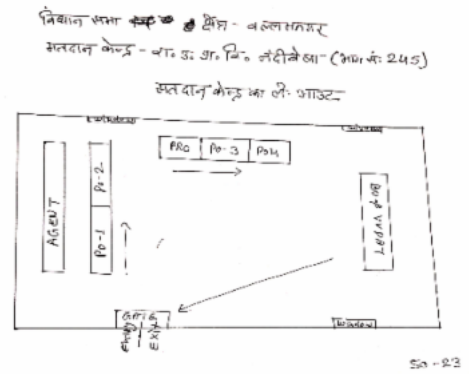 विधान सभा क्षेत्र - वल्लभनगर
मतदान केन्द्र - रा. उ. प्रा. वि. नंदीवेला - (भाग सं. 245)
मतदान केन्द्र का ले-आउट
window
window
PRO PO-3 PO4
AGENT
PO-1 PO-2
VVPAT
GATE
Entry
EXIT
window
50-23